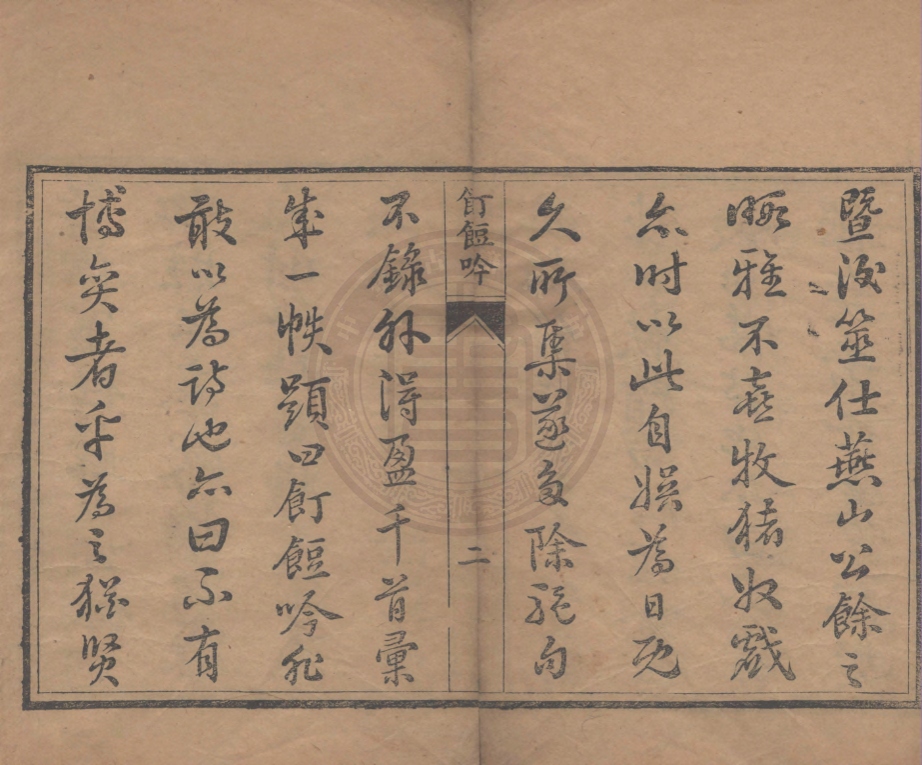 暨後筮仕燕山公餘之
暇雅不喜牧猪奴戲
亦时以此自娛為日既
久所集遂多除絕句
不錄外得盈千首彙
成一帙顏曰飣餖吟非
敢以為詩也亦曰不有
博奕者乎為之猶賢
飣餖吟
二